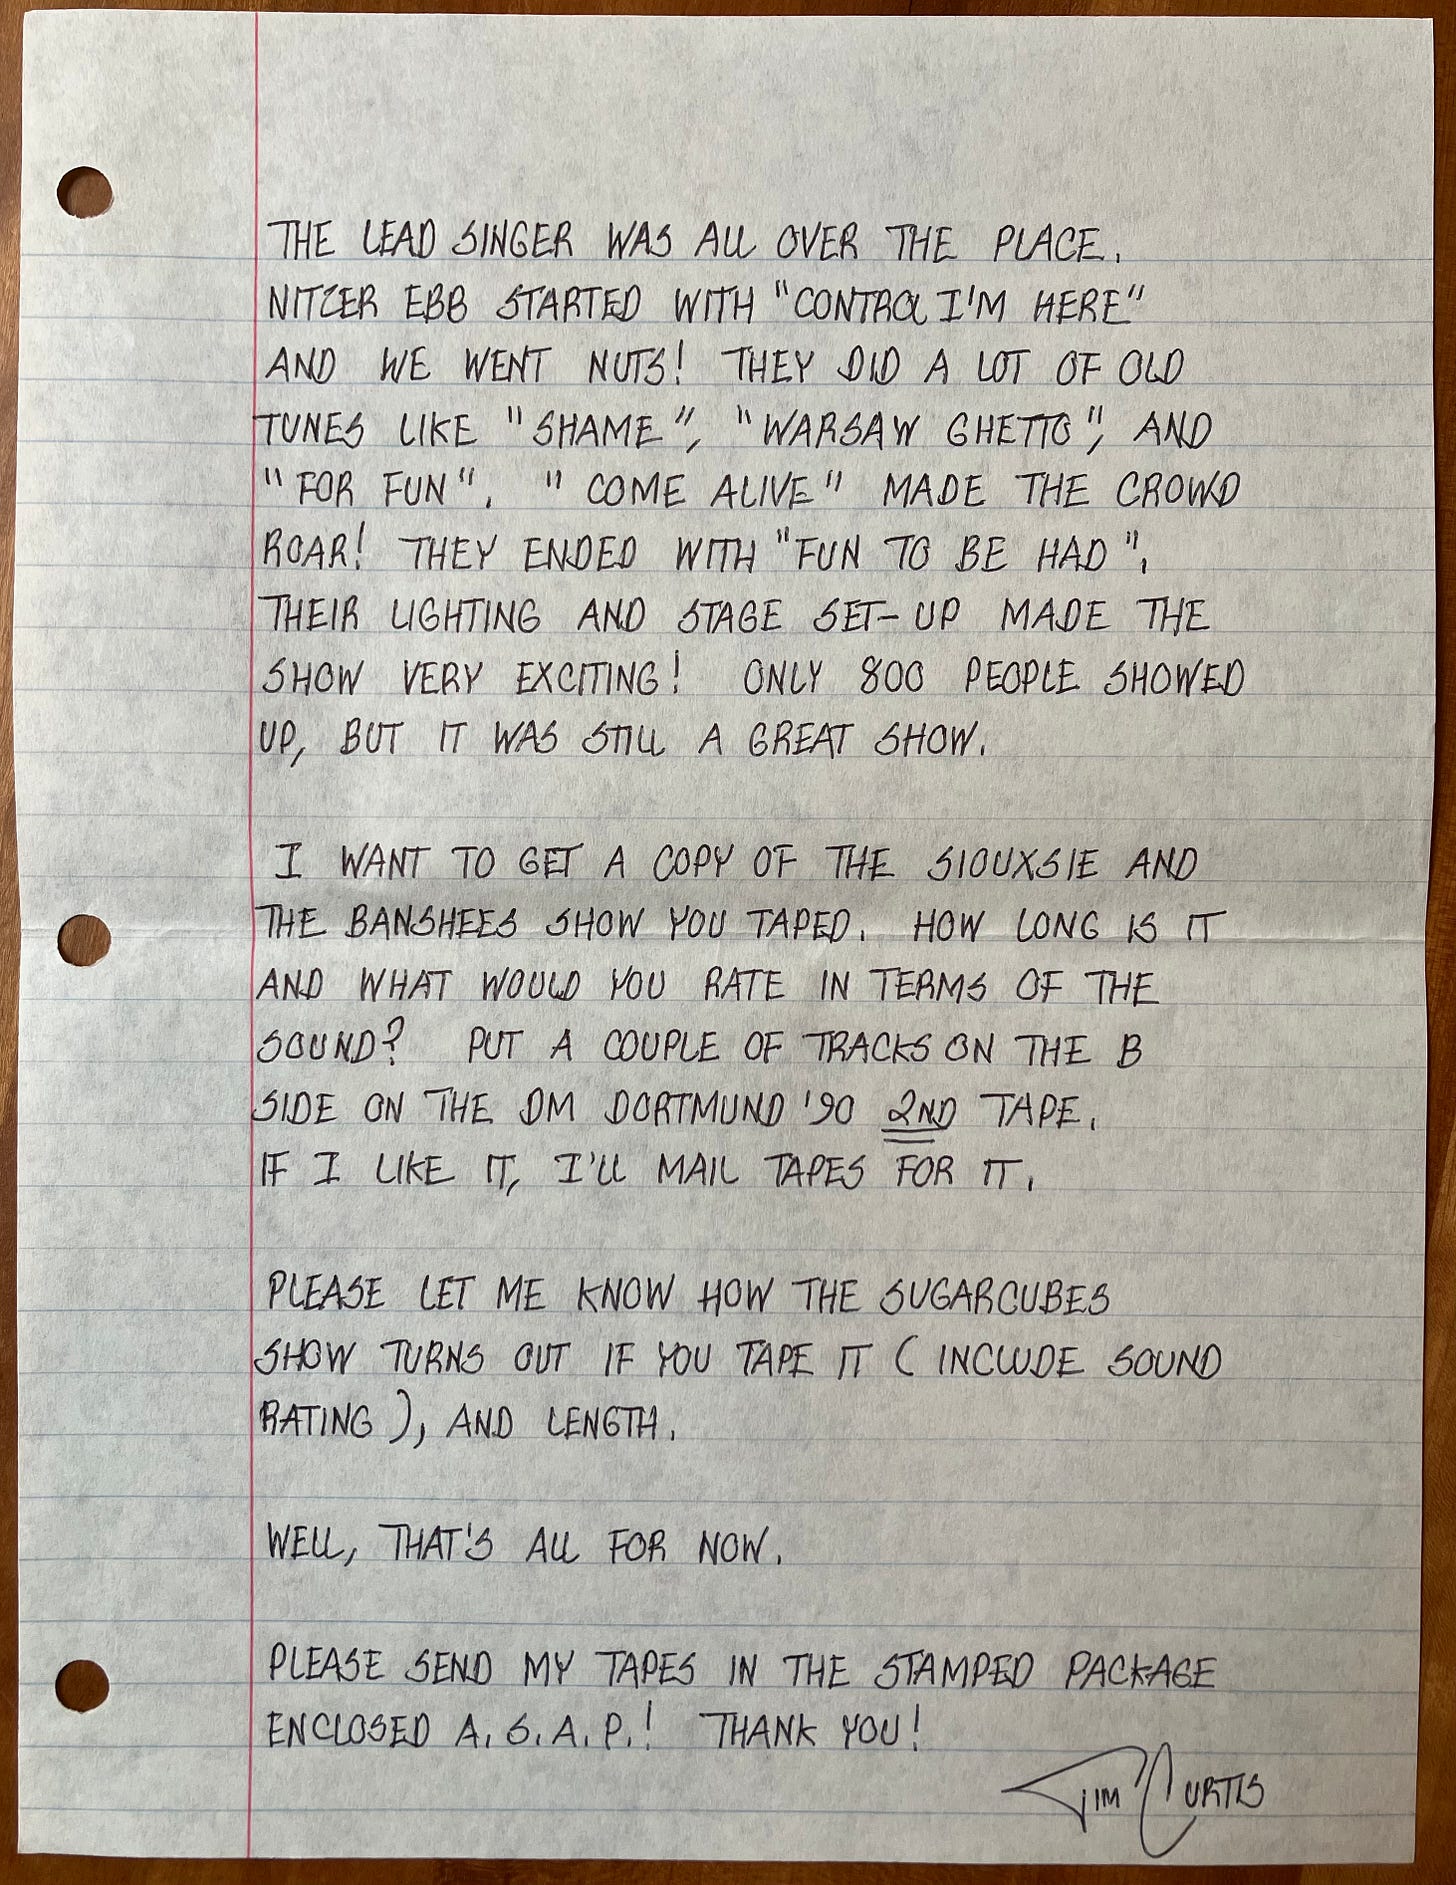 THE LEAD SINGER WAS ALL OVER THE PLACE.
NITZER EBB STARTED WITH "CONTROL I'M HERE"
AND WE WENT NUTS! THEY DID A LOT OF OLD
TUNES LIKE "SHAME", "WARSAW GHETTO", AND
"FOR FUN". "COME ALIVE" MADE THE CROWD
ROAR! THEY ENDED WITH "FUN TO BE HAD".
THEIR LIGHTING AND STAGE SET-UP MADE THE
SHOW VERY EXCITING! ONLY 800 PEOPLE SHOWED
UP, BUT IT WAS STILL A GREAT SHOW.
I WANT TO GET A COPY OF THE SIOUXSIE AND
THE BANSHEES SHOW YOU TAPED. HOW LONG IS IT
AND WHAT WOULD YOU RATE IN TERMS OF THE
SOUND? PUT A COUPLE OF TRACKS ON THE B
SIDE ON THE DM DORTMUND '90 2ND TAPE.
IF I LIKE IT, I'LL MAIL TAPES FOR IT.
PLEASE LET ME KNOW HOW THE SUGARCUBES
SHOW TURNS OUT IF YOU TAPE IT (INCLUDE SOUND
RATING), AND LENGTH.
WELL, THAT'S ALL FOR NOW.
PLEASE SEND MY TAPES IN THE STAMPED PACKAGE
ENCLOSED A.S.A.P.! THANK YOU!
JIM CURTIS